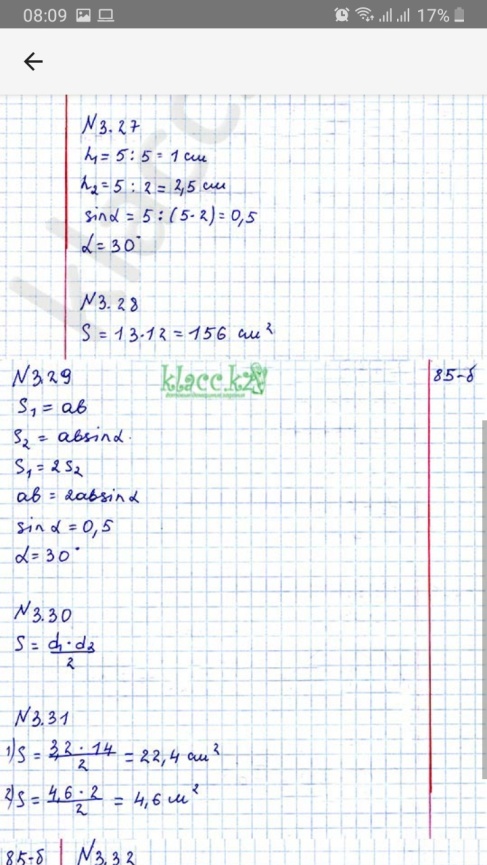 08:09 17%
N3.27
h₁ = 5 : 5 = 1 см
h₂ = 5 : 2 = 2,5 см
sinα = 5 : (5·2) = 0,5
α = 30°
N3.28
S = 13·12 = 156 см²
N3.29
klacc.kz
85-б
S₁ = ab
S₂ = absinα.
S₁ = 2S₂
ab = 2absinα
sin α = 0,5
α = 30°
N3.30
S = d₁·d₂/2
N3.31
1) S = 3,2·14/2 = 22,4 см²
2) S = 4,6·2/2 = 4,6 м²
85-б N3.32